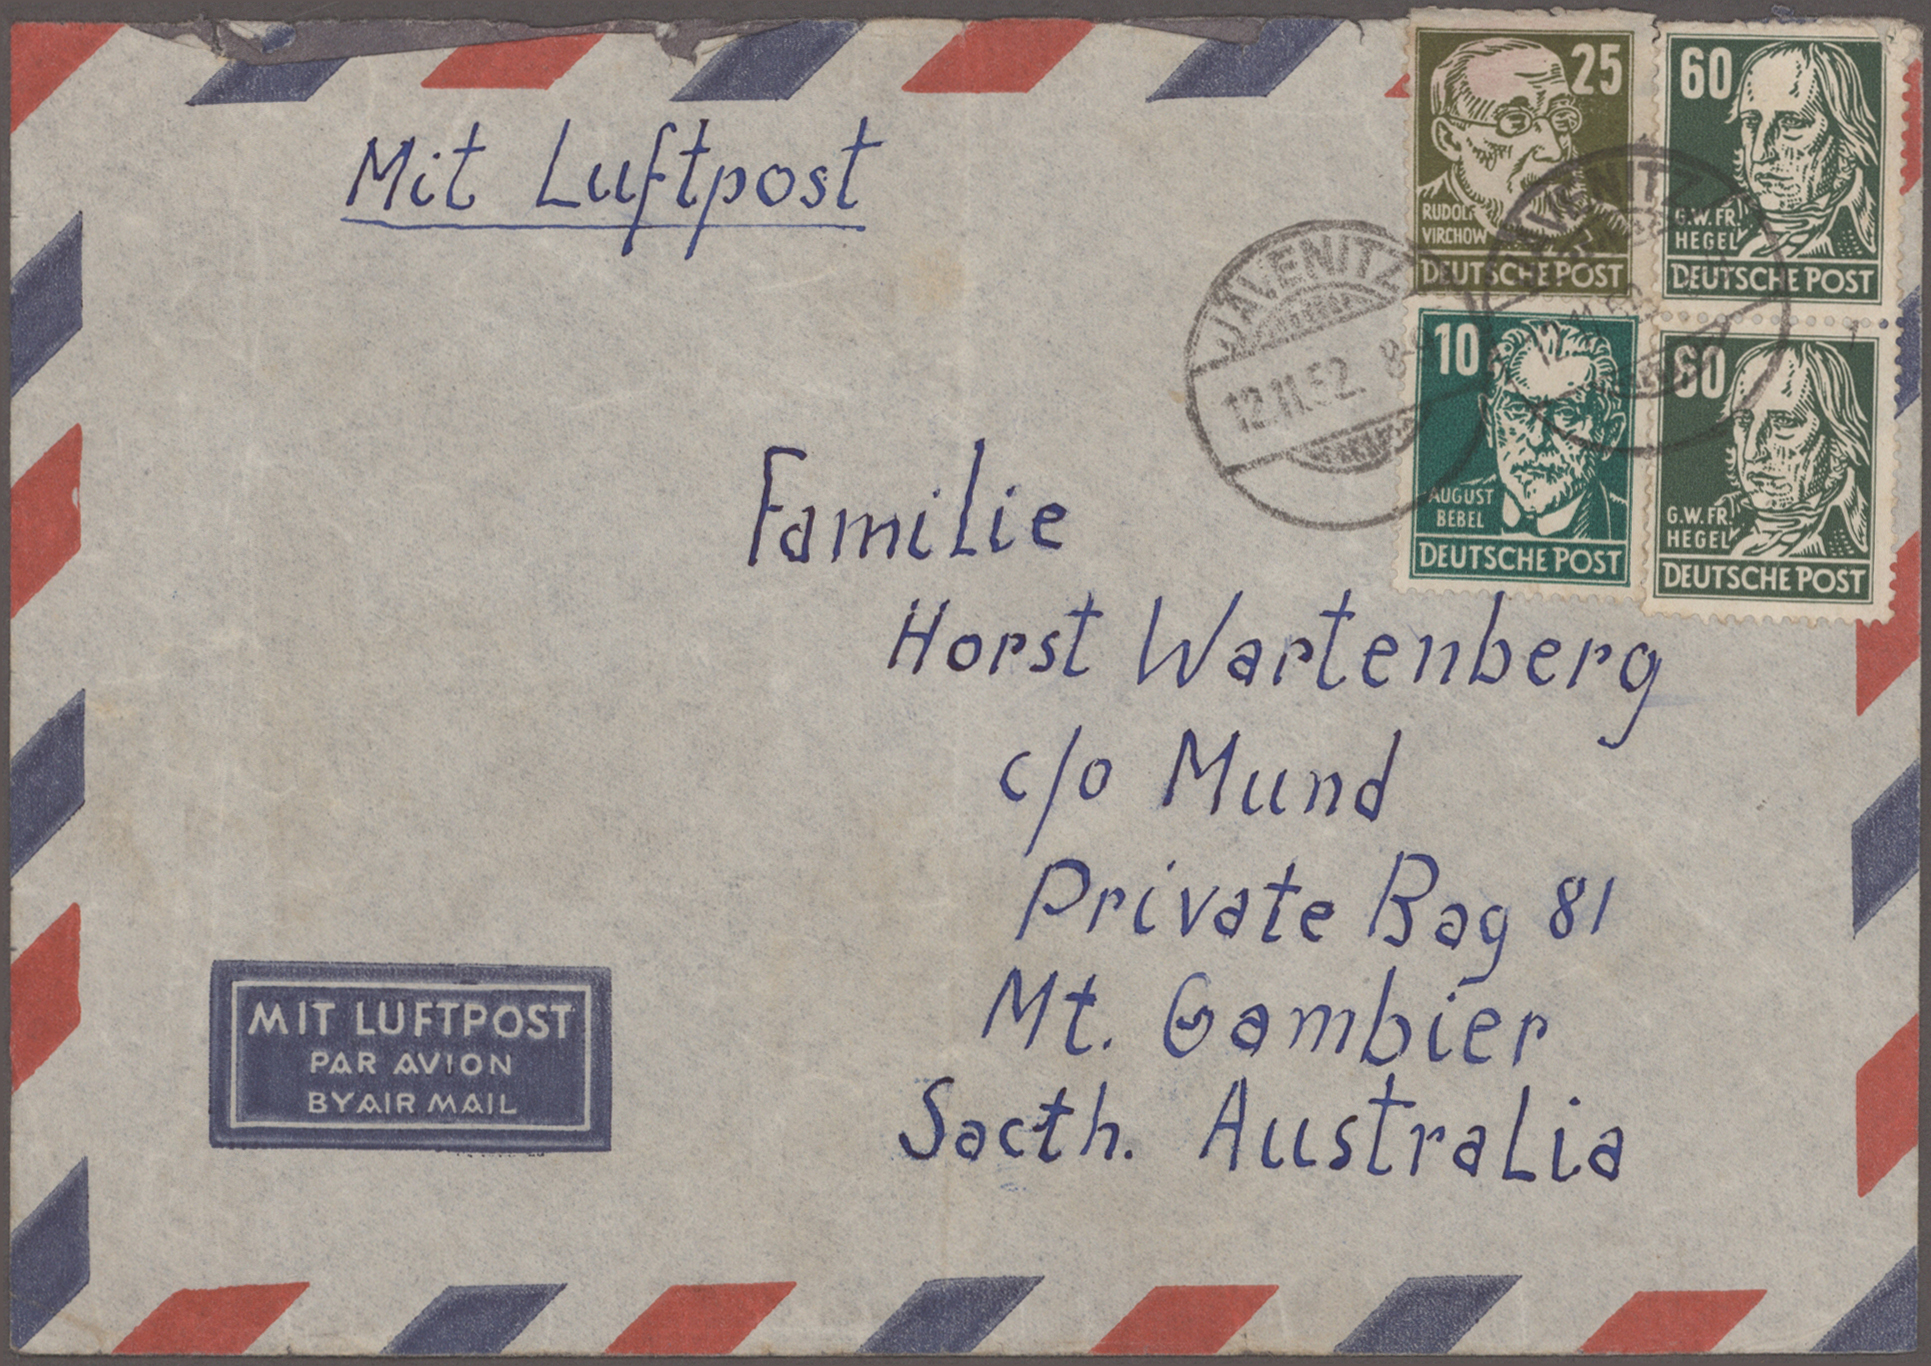 Mit Luftpost
25
RUDOLF
VIRCHOW
DEUTSCHE POST
60
G.W.FR.
HEGEL
DEUTSCHE POST
JÄVENITZ
12.11.52. 8
10
AUGUST
BEBEL
DEUTSCHE POST
60
G.W.FR.
HEGEL
DEUTSCHE POST
Familie
Horst Wartenberg
c/o Mund
Private Bag 81
Mt. Gambier
Sacth. Australia
MIT LUFTPOST
PAR AVION
BY AIR MAIL